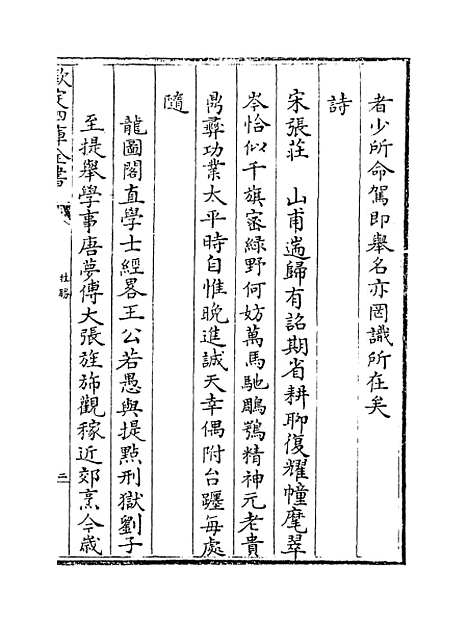 者少所命駕即舉名亦罔識所在矣
詩
宋張莊　山甫遄歸有詔期省耕聊復耀幢麾翠
岑恰似千旗密綠野何妨萬馬馳鵰鶚精神元老貴
鼎彞功業太平時自惟晚進誠天幸偶附台躔每處
隨
龍圖閣直學士經畧王公若愚與提點刑獄劉子
至提舉學事唐夢傅大張旌斾觀稼近郊烹今歲
欽定四庫全書
桂勝
三